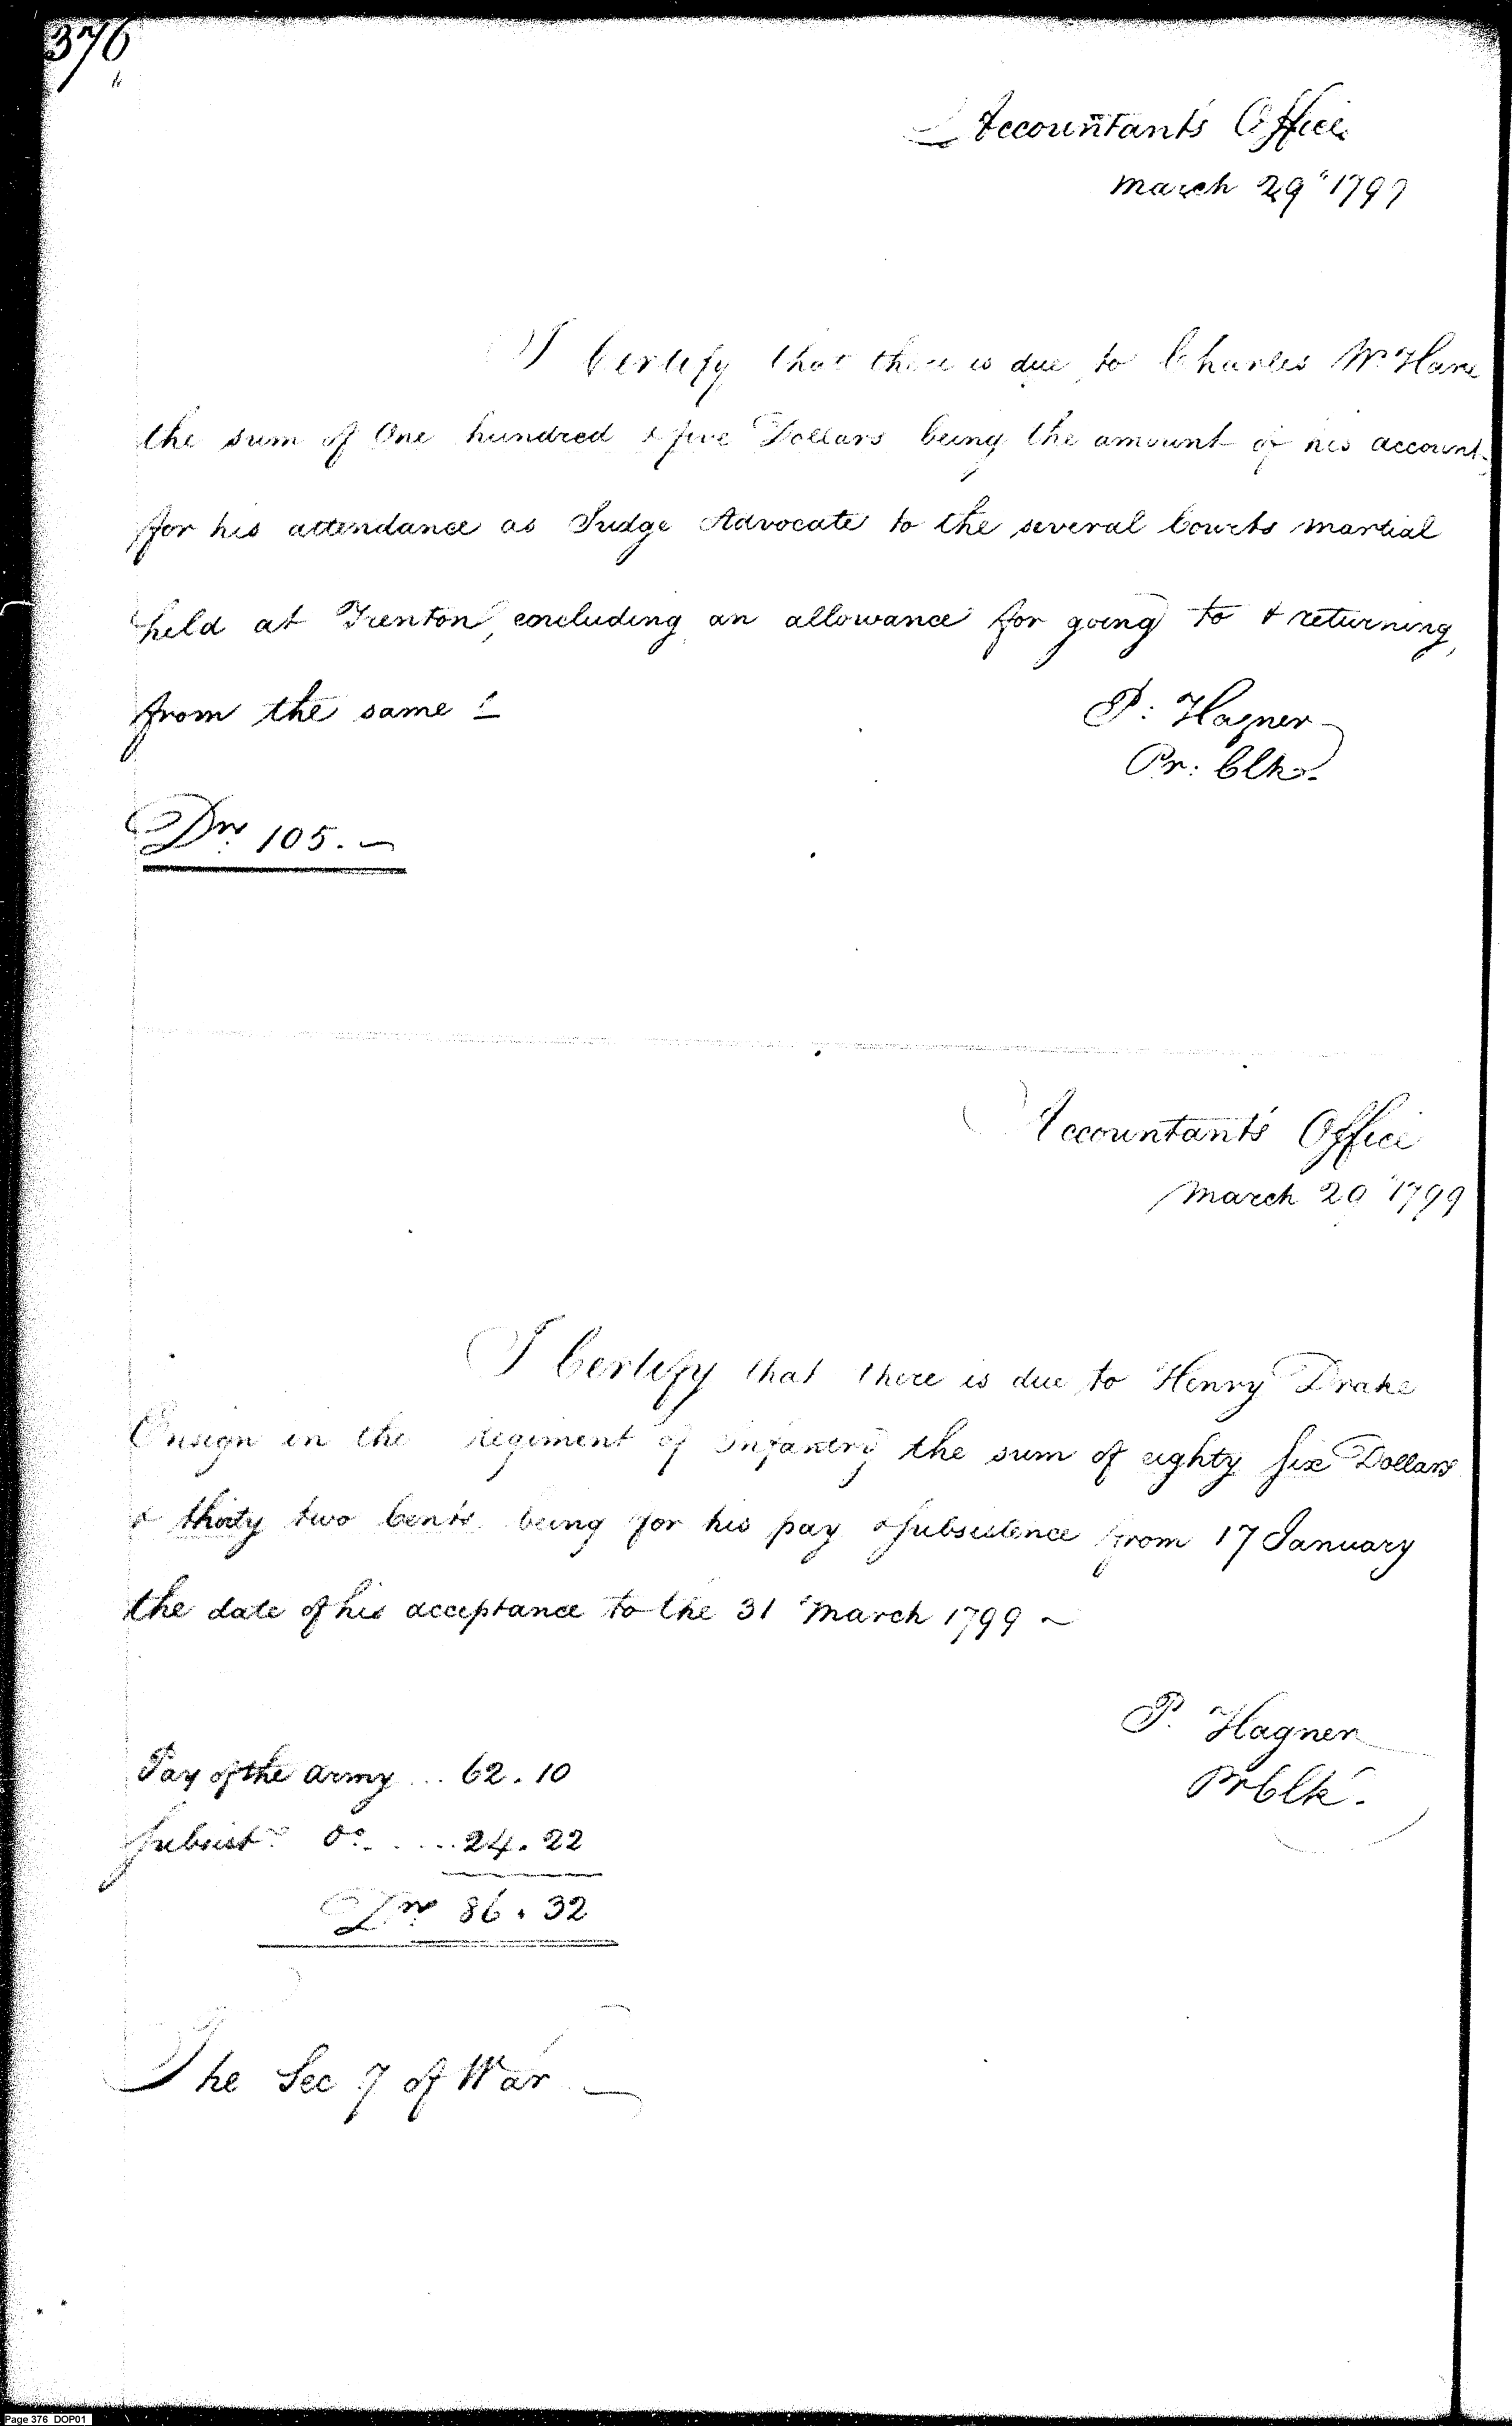 376
Accountant's Office
March 29" 1799
I Certify that there is due to Charles Wm Hare
the sum of One hundred & five Dollars being the amount of his account
for his attendance as Judge Advocate to the several Courts martial
held at Trenton, encluding an allowance for going to & returning,
from the same –
P: Hagner
Pr: Clk.
Drs. 105.–
Accountant's Office
March 29" 1799
I Certify that there is due to Henry Drake
Ensign in the regiment of infantry the sum of eighty six Dollars
& thirty two Cents being for his pay & subsistence from 17 January
the date of his acceptance to the 31 March 1799 ~
P. Hagner
Pr Clk.
Pay of the army ... 62.10
Subsistce Do ..... 24.22
Drs. 86.32
The Secy of War
Page 376 DOP01